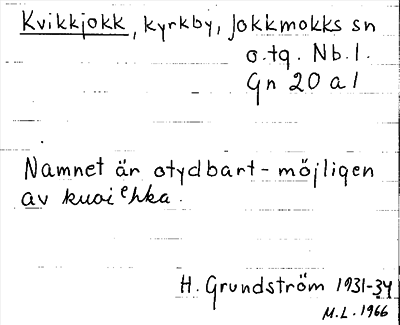 Kvikkjokk, kyrkby, Jokkmokks sn
o. tg. Nb. l.
Gn 20 a 1
Namnet är otydbart - möjligen
av kuoiehka.
H. Grundström 1931-34
M.L. 1966